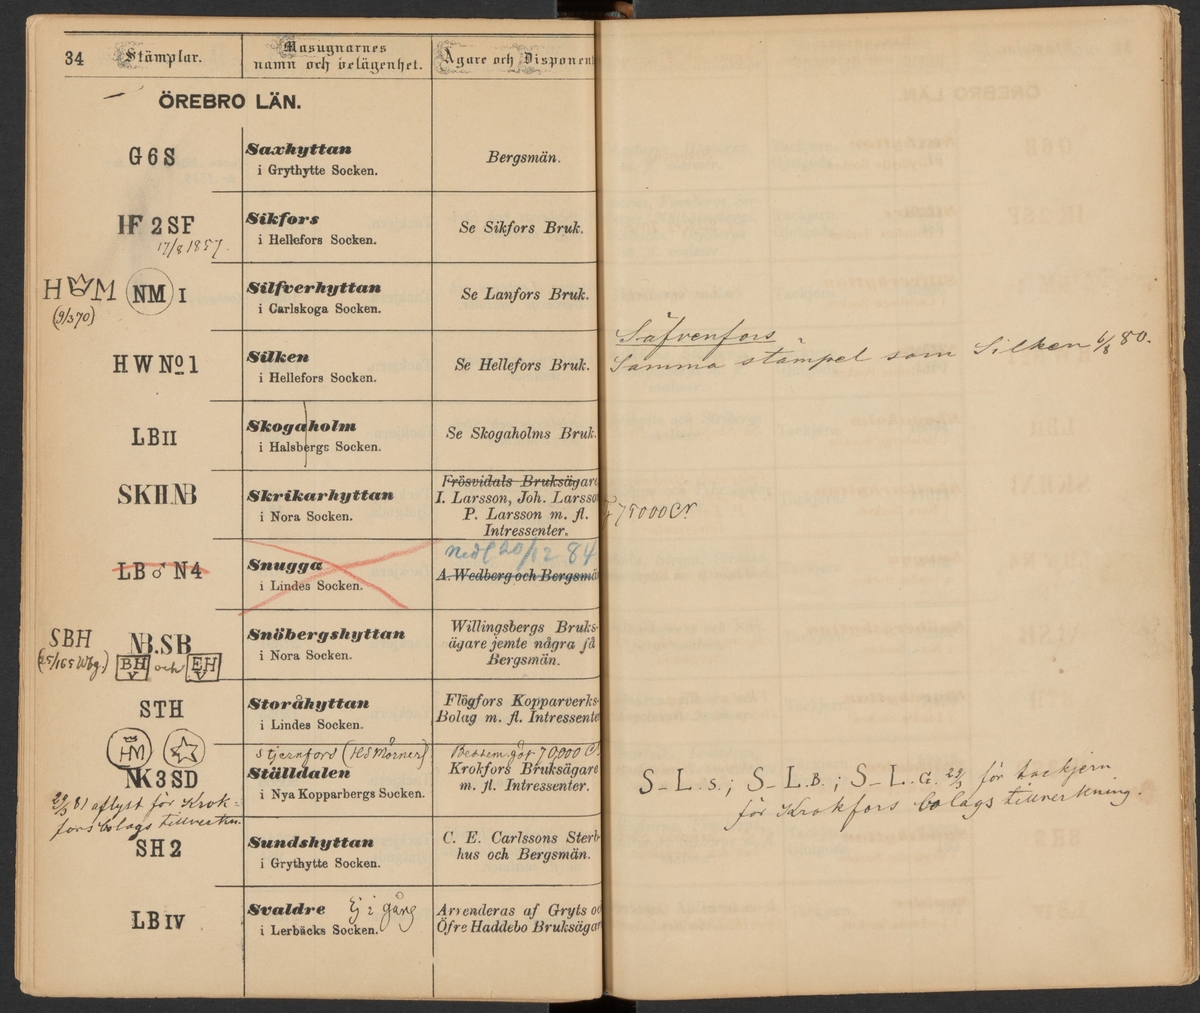 34
Stämplar.
Masugnarnes
namn och belägenhet.
Ägare och Disponent
ÖREBRO LÄN.
G6S
Saxhyttan
i Grythytte Socken.
Bergsmän.
HF 2 SF
17/8 1857.
Sikfors
i Hellefors Socken.
Se Sikfors Bruk.
H M NM I
(9/3 70)
Silfverhyttan
i Carlskoga Socken.
Se Lanfors Bruk.
H W No 1
Silken
i Hellefors Socken.
Se Hellefors Bruk.
Säfvenfors
Samma stämpel som Silken 6/8 80.
LB II
Skogaholm
i Halsbergs Socken.
Se Skogaholms Bruk.
SKH.NB
Skrikarhyttan
i Nora Socken.
Frösvidals Bruksägare
I. Larsson, Joh. Larsso
P. Larsson m. fl.
Intressenter.
75000 Cr
LB ♂ N4
Snugga
i Lindes Socken.
Nedl 20/12 84
A. Wedberg och Bergsmä
SBH
NB.SB
BH V och EH V
Snöbergshyttan
i Nora Socken.
Willingsbergs Bruks-
ägare jemte några få
Bergsmän.
STH
Storåhyttan
i Lindes Socken.
Flögfors Kopparverks-
Bolag m. fl. Intressente
HM
Stjernfors (HS Mörner)
70,000 C
NK3SD
Ställdalen
i Nya Kopparbergs Socken.
Krokfors Bruksägare
m. fl. Intressenter.
29/3 81 aflyst för Krok-
fors bolags tillverkn.
S-L.S.; S-L.B.; S-L.G. 29/3 för tackjern
för Krokfors bolags tillverkning.
SH2
Sundshyttan
i Grythytte Socken.
C. E. Carlssons Sterb-
hus och Bergsmän.
LB IV
Svaldre Ej i gång
i Lerbäcks Socken.
Arrenderas af Gryts oc
Öfre Haddebo Bruksägar